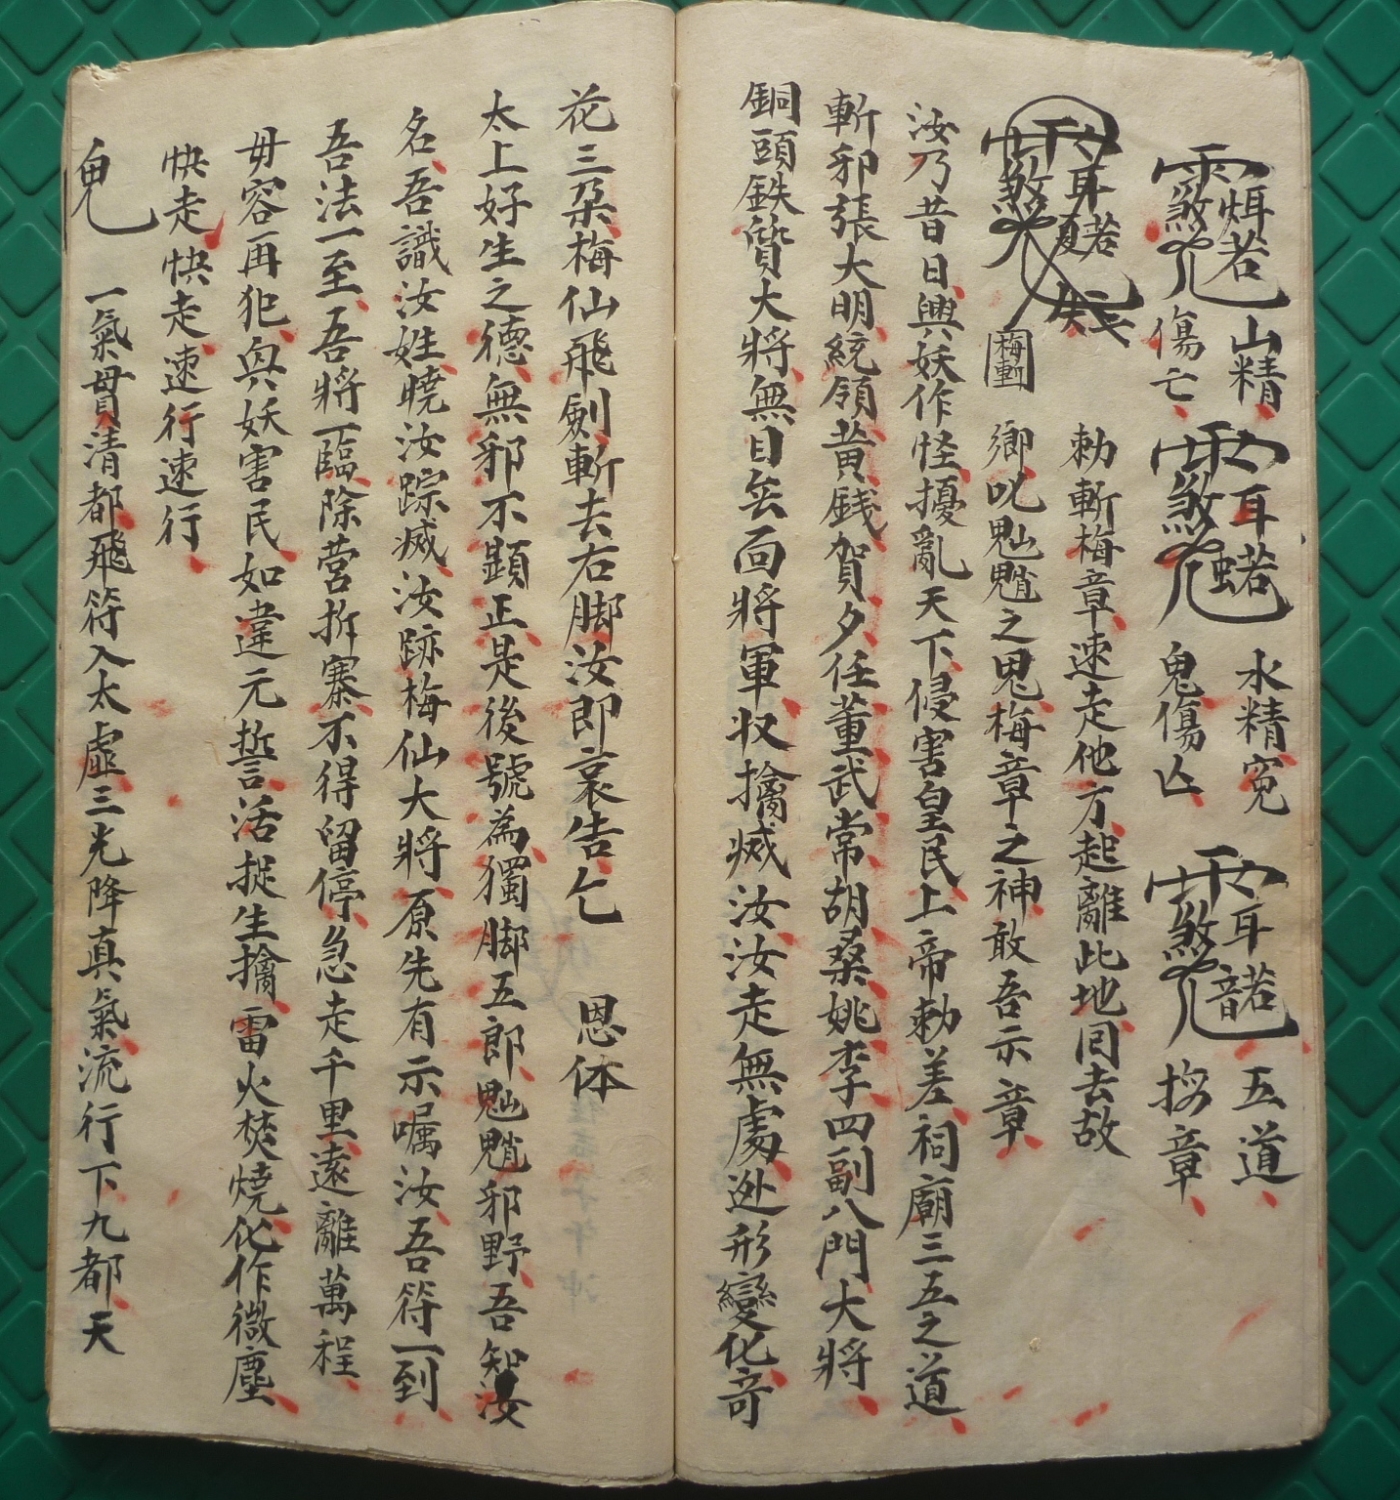 山精 水精 五道
傷亡 鬼傷亡 按章
勅斬梅章速走他方起離此地囘去故
鄉叱魈之鬼梅章之神敢吾示章
汝乃昔日興妖作怪擾亂天下侵害皇民上帝勅差祠廟三五之道
斬邪張大明統領黃錢賀夕任董武常胡桑姚李四副八門大將
銅頭鉄質大將無目無面將軍収擒滅汝汝走無處迯形變化奇
花三朶梅仙飛劍斬去右脚汝即哀告乞 恩体
太上好生之德無邪不顕正是後號為獨脚五郎魈邪野吾知汝
名吾識汝姓曉汝踪滅汝跡梅仙大將原先有示嘱汝吾符一到
吾法一至吾將一臨除营拆寨不得留停急走千里遠離萬程
毋容再犯與妖害民如違元誓活捉生擒雷火焚燒化作微塵
快走快走速行速行
一氣貫清都飛符入太虛三光降真氣流行下九都天